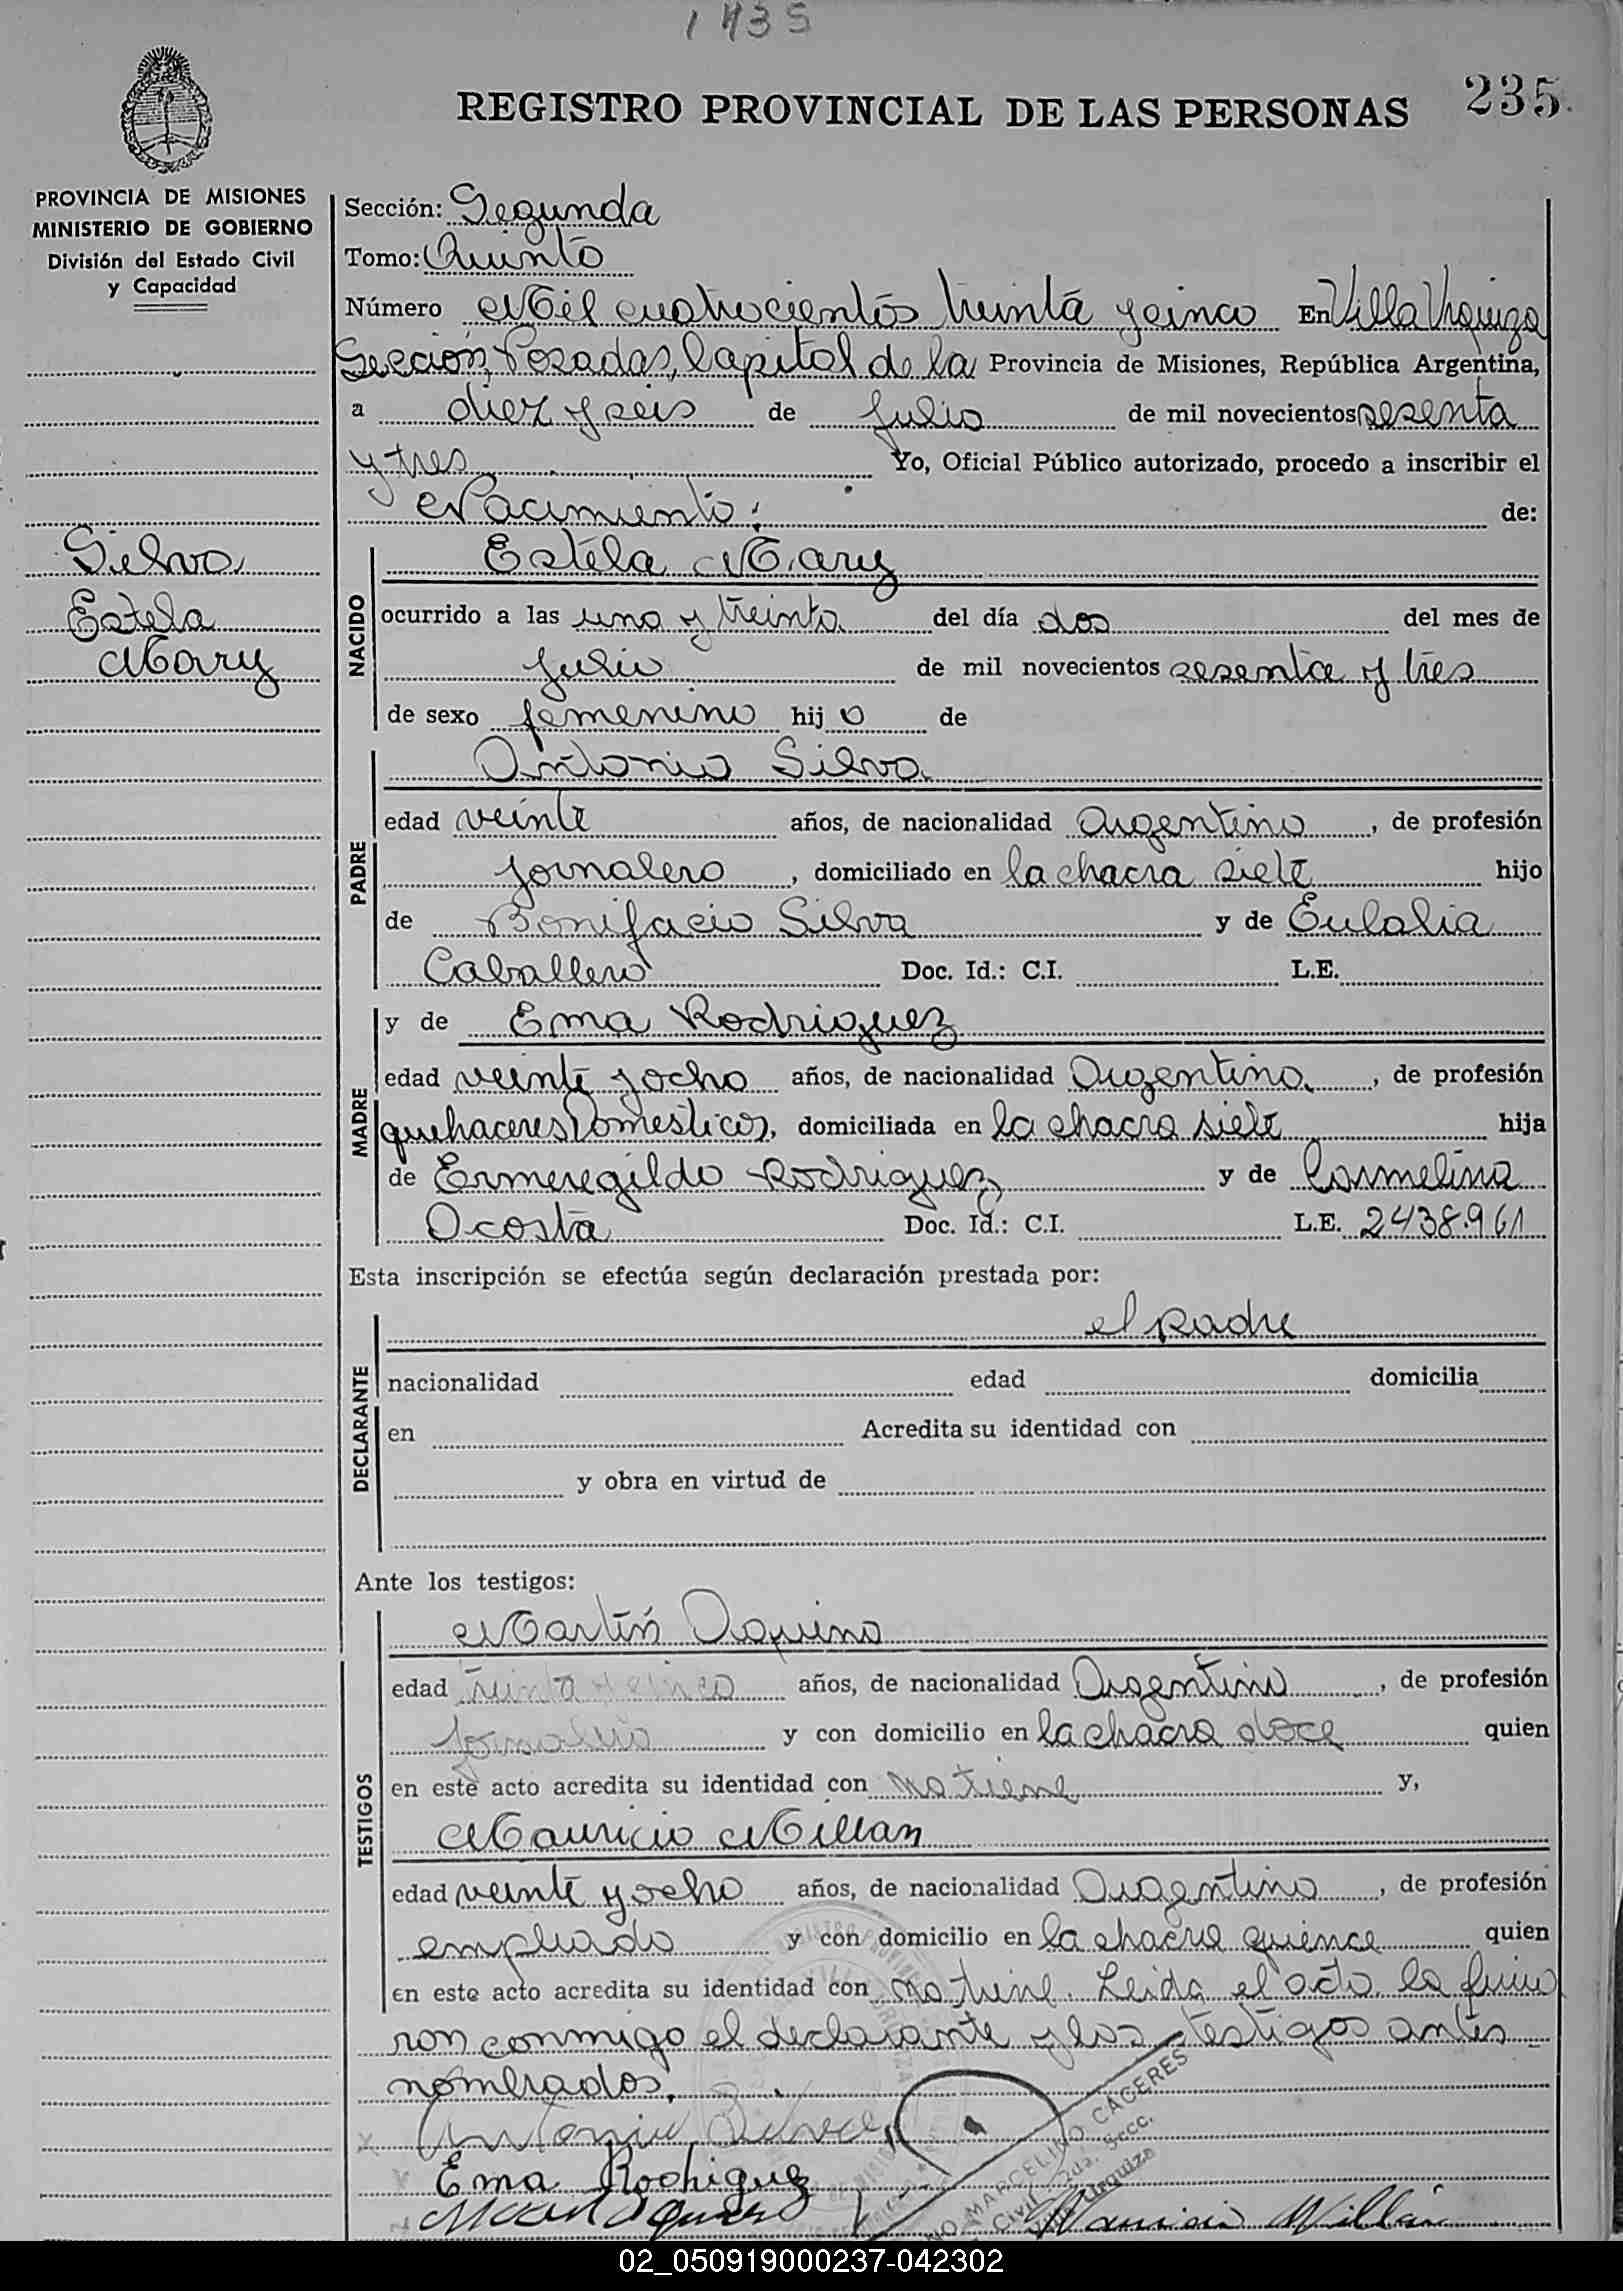 1435
235
REGISTRO PROVINCIAL DE LAS PERSONAS
PROVINCIA DE MISIONES
MINISTERIO DE GOBIERNO
División del Estado Civil
y Capacidad
Silva
Estela
Mary
Sección: Segunda
Tomo: Quinto
Número Mil cuatrocientos treinta y cinco En Villa Urquiza
Sección, Posadas, Capital de la Provincia de Misiones, República Argentina,
a diez y seis de julio de mil novecientos sesenta
y tres Yo, Oficial Público autorizado, procedo a inscribir el
Nacimiento: de:
NACIDO
Estela Mary
ocurrido a las una y treinta del día dos del mes de
julio de mil novecientos sesenta y tres
de sexo femenino hij o de
PADRE
Antonio Silva
edad veinte años, de nacionalidad Argentino, de profesión
jornalero, domiciliado en la chacra siete hijo
de Bonifacio Silva y de Eulalia
Caballero Doc. Id.: C.I. L.E.
MADRE
y de Ema Rodriguez
edad veinte y ocho años, de nacionalidad Argentina, de profesión
quehaceres Domesticos, domiciliada en la chacra siete hija
de Ermeregildo Rodriguez y de Carmelina
Acosta Doc. Id.: C.I. L.E. 2438.961
Esta inscripción se efectúa según declaración prestada por:
DECLARANTE
el padre
nacionalidad edad domicilia
en Acredita su identidad con
y obra en virtud de
Ante los testigos:
TESTIGOS
Martín Aquino
edad treinta y cinco años, de nacionalidad Argentino, de profesión
jornalero y con domicilio en la chacra doce quien
en este acto acredita su identidad con no tiene y,
Mauricio Millan
edad veinte y ocho años, de nacionalidad Argentino, de profesión
empleado y con domicilio en la chacra quince quien
en este acto acredita su identidad con no tiene. Leida el acta la firma
ron conmigo el declarante y los testigos antes
nombrados.
Antonio Silva
Ema Rodriguez
MARCELINO CACERES
Civil 2da. Secc.
Urquiza
Mauricio Millan
02_050919000237-042302